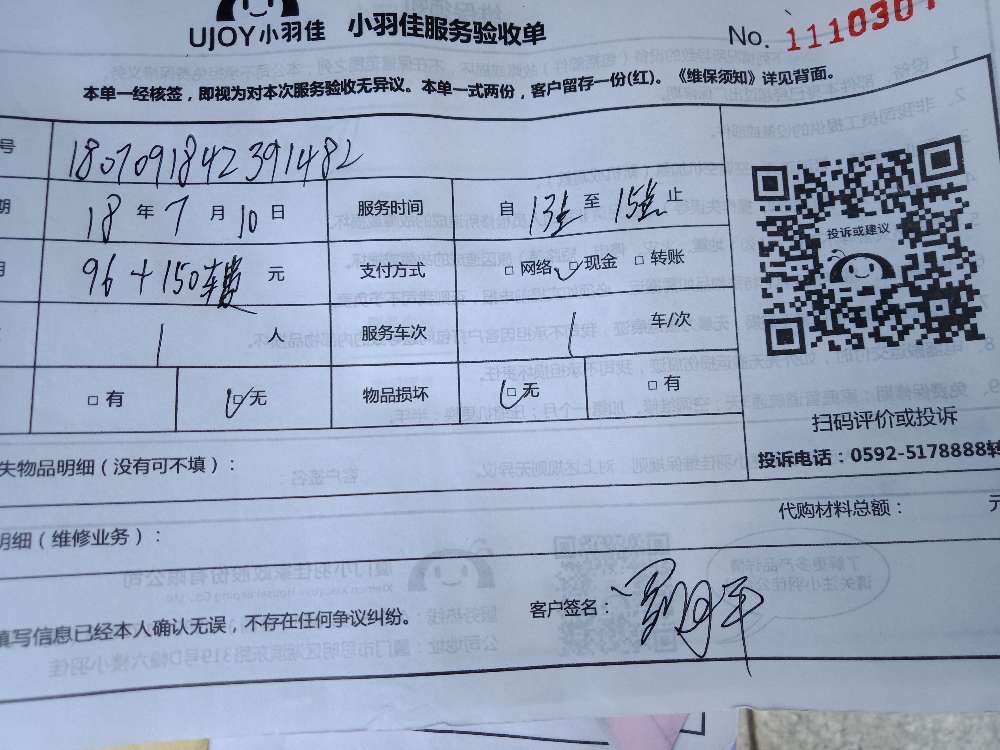 UJOY小羽佳 小羽佳服务验收单 No. 1110307
本单一经核签，即视为对本次服务验收无异议。本单一式两份，客户留存一份(红)。《维保须知》详见背面。
号 1807091842391482
期 18 年 7 月 10 日 服务时间 自 13点 至 15点 止
96 + 150车费 元 支付方式 □ 网络 □ 现金 □ 转账
1 人 服务车次 1 车/次
□ 有 □ 无 物品损坏 □ 无 □ 有
投诉或建议
扫码评价或投诉
失物品明细（没有可不填）：
投诉电话：0592-5178888转
代购材料总额： 元
明细（维修业务）：
填写信息已经本人确认无误，不存在任何争议纠纷。 客户签名：